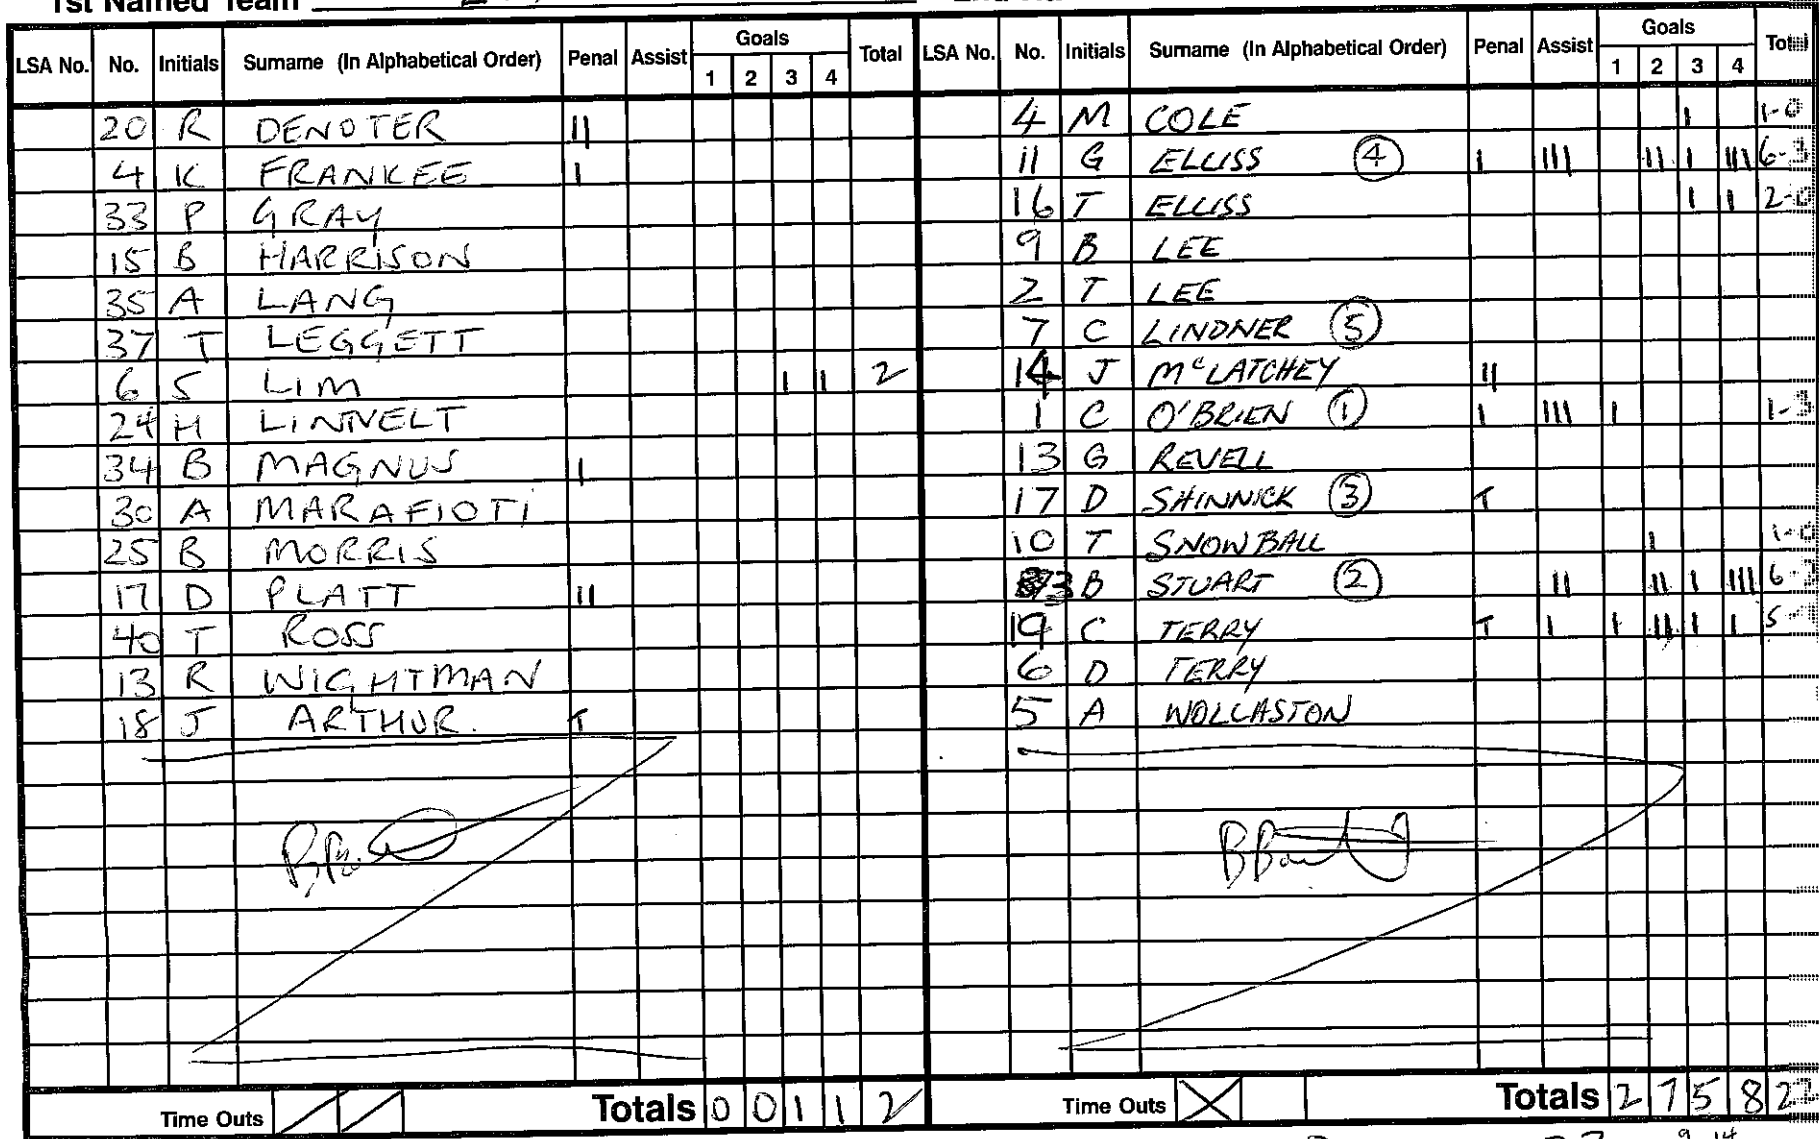 1st Named Team
LSA No. No. Initials Surname (In Alphabetical Order) Penal Assist Goals 1 2 3 4 Total
20 R DENOTER II
4 K FRANKEE I
33 P GRAY
15 B HARRISON
35 A LANG
37 T LEGGETT
6 S LIM I I 2
24 H LINNELT
34 B MAGNUS I
30 A MARAFIOTI
25 B MORRIS
17 D PLATT II
40 T ROSS
13 R WIGHTMAN
18 J ARTHUR. T
Time Outs Totals 0 0 1 1 2
LSA No. No. Initials Surname (In Alphabetical Order) Penal Assist Goals 1 2 3 4 Total
4 M COLE I 1-0
11 G ELLISS 4 I III II I III 6-3
16 T ELLISS I I 2-0
9 B LEE
2 T LEE
7 C LINDNER 5
14 J McLATCHEY II
1 C O'BRIEN 1 I III I 1-3
13 G REVELL
17 D SHINNICK 3 T
10 T SNOWBALL I 1-0
B STUART 2 II II I III
19 C TERRY T I I II I I
6 D TERRY
5 A WOLLASTON
Time Outs Totals 2 7 5 8